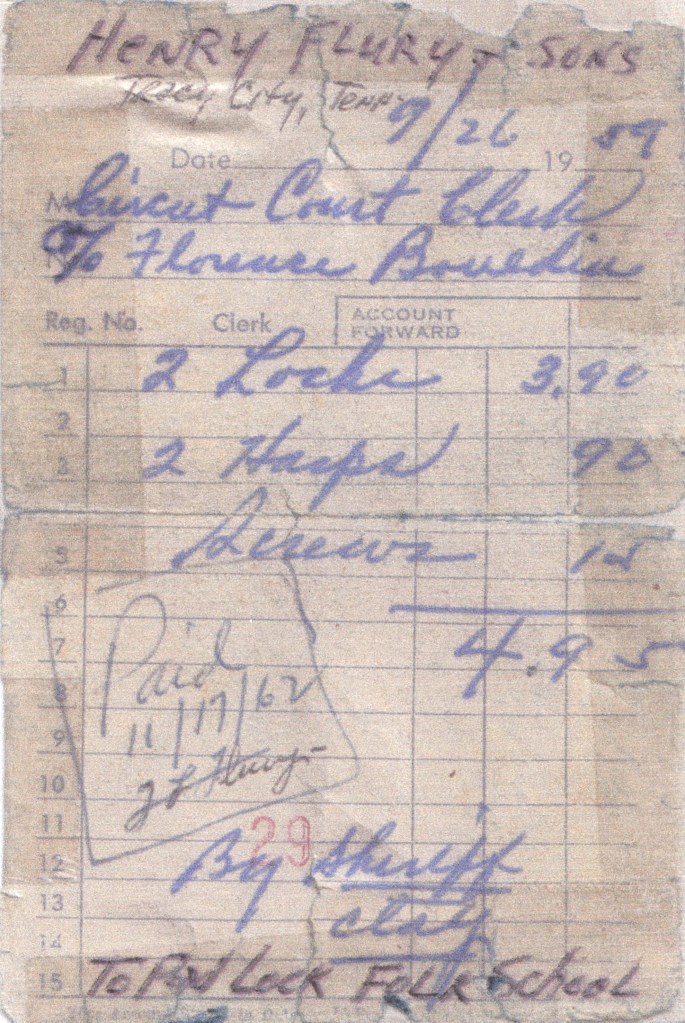 HENRY FLURY & SONS
TRACY CITY, TENN.
9/26
Date 19 59
M Circut Court Clerk
c/o Florence Bouldin
Reg. No. Clerk ACCOUNT FORWARD
1 2 Locks 3.90
2
3 2 Hasps 90
5 Screws 15
6
7 4.95
8 Paid
9 11/17/62
10 Flury
11 29
12 By Sheriff
13 clay
14
15 TO PAD LOCK FOLK SCHOOL